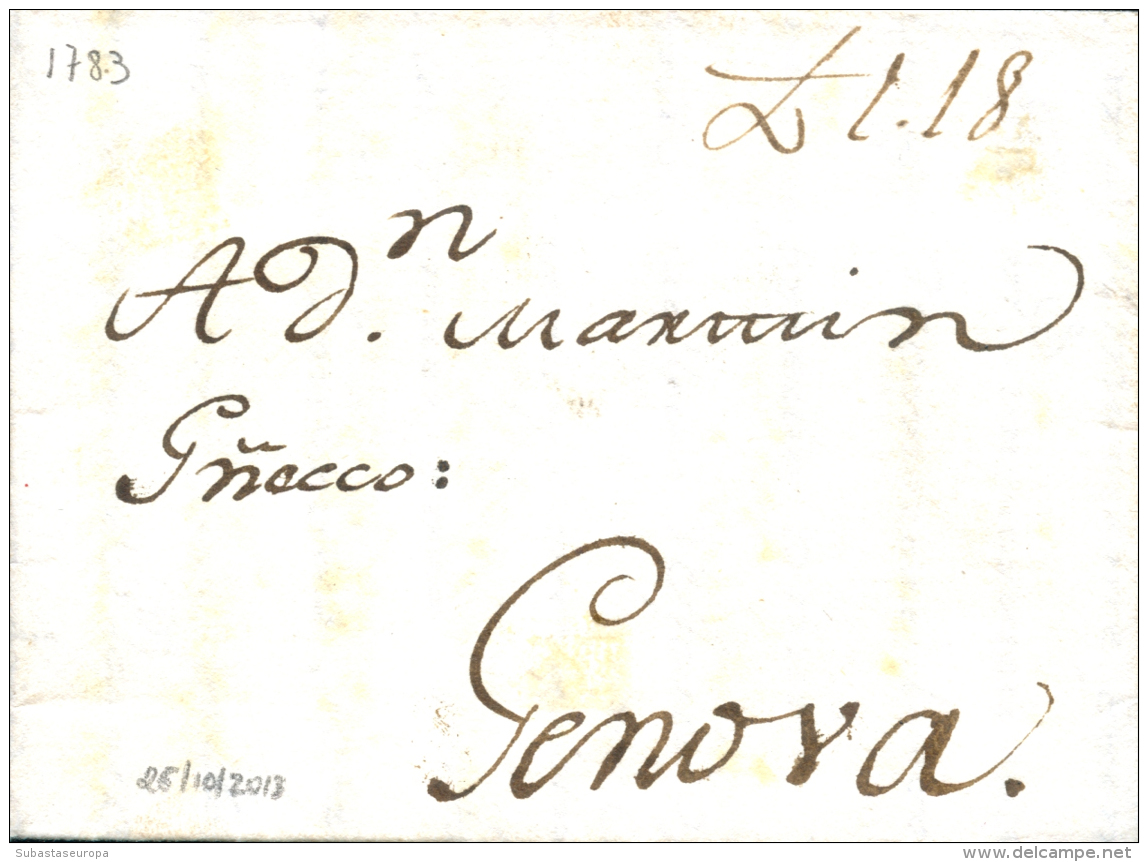 1783
£ 1.18
A Dn. Marmin
Gñecco:
Genova.
25/10/2013
Subastaseuropa
www.delcampe.net